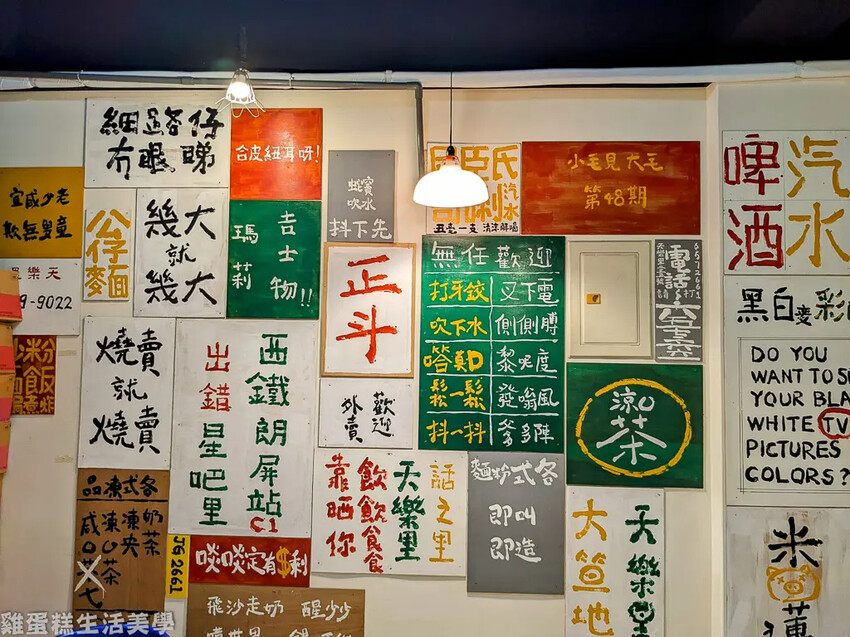 細路仔
冇眼睇
合皮紐耳呀!
宜威少老
欺無男童
公仔麵
幾大
就
幾大
吉士物!!
瑪莉
吹水
抖下先
正斗
汽水
五毫一支
小毛見大毛
第48期
啤酒
汽水
無任歡迎
打牙鉸
叉下電
吹下水
側側膊
唞一唞
鬆一鬆
發嗡風
抖一抖
電話
六五七六
6572661
天樂里
9-9022
粉飯
燒賣
就
燒賣
西鐵朗屏站
C1
出錯星吧里
歡迎
外賣
涼茶
黑白変彩
DO YOU
WANT TO S
YOUR BLA
WHITE TV
PICTURES
COLORS?
話之里
天樂里
飲飲食食
靠晒你
各式粉麵
即叫
即造
大笪地
天樂
各式凍品
奶茶
凍央
凍O茶
咸O七
JG 2661
啖啖定有$利
飛沙走奶
醒少少
米
雞蛋糕生活美學